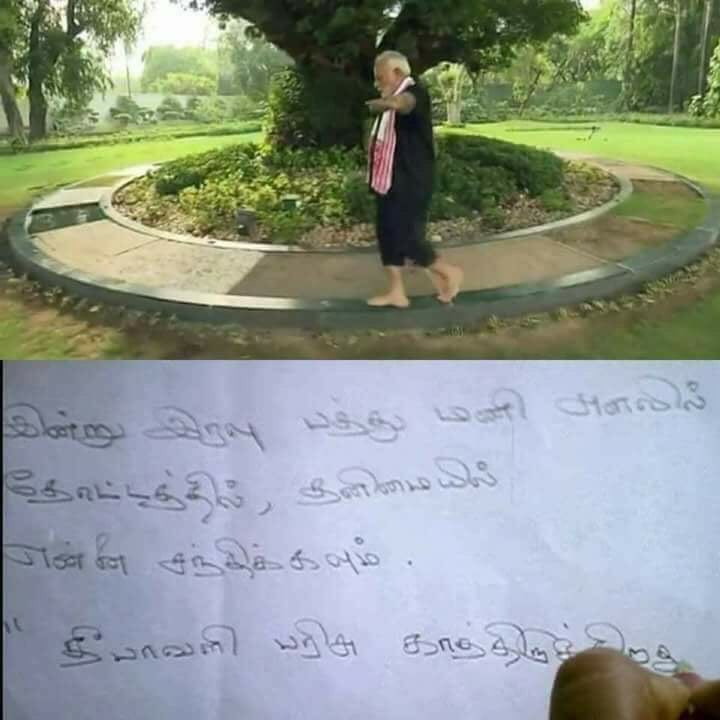 இன்று இரவு பத்து மணி அளவில்
தோட்டத்தில், தனிமையில்
என்னை சந்திக்கவும்.
" தீபாவளி பரிசு காத்திருக்கிறது